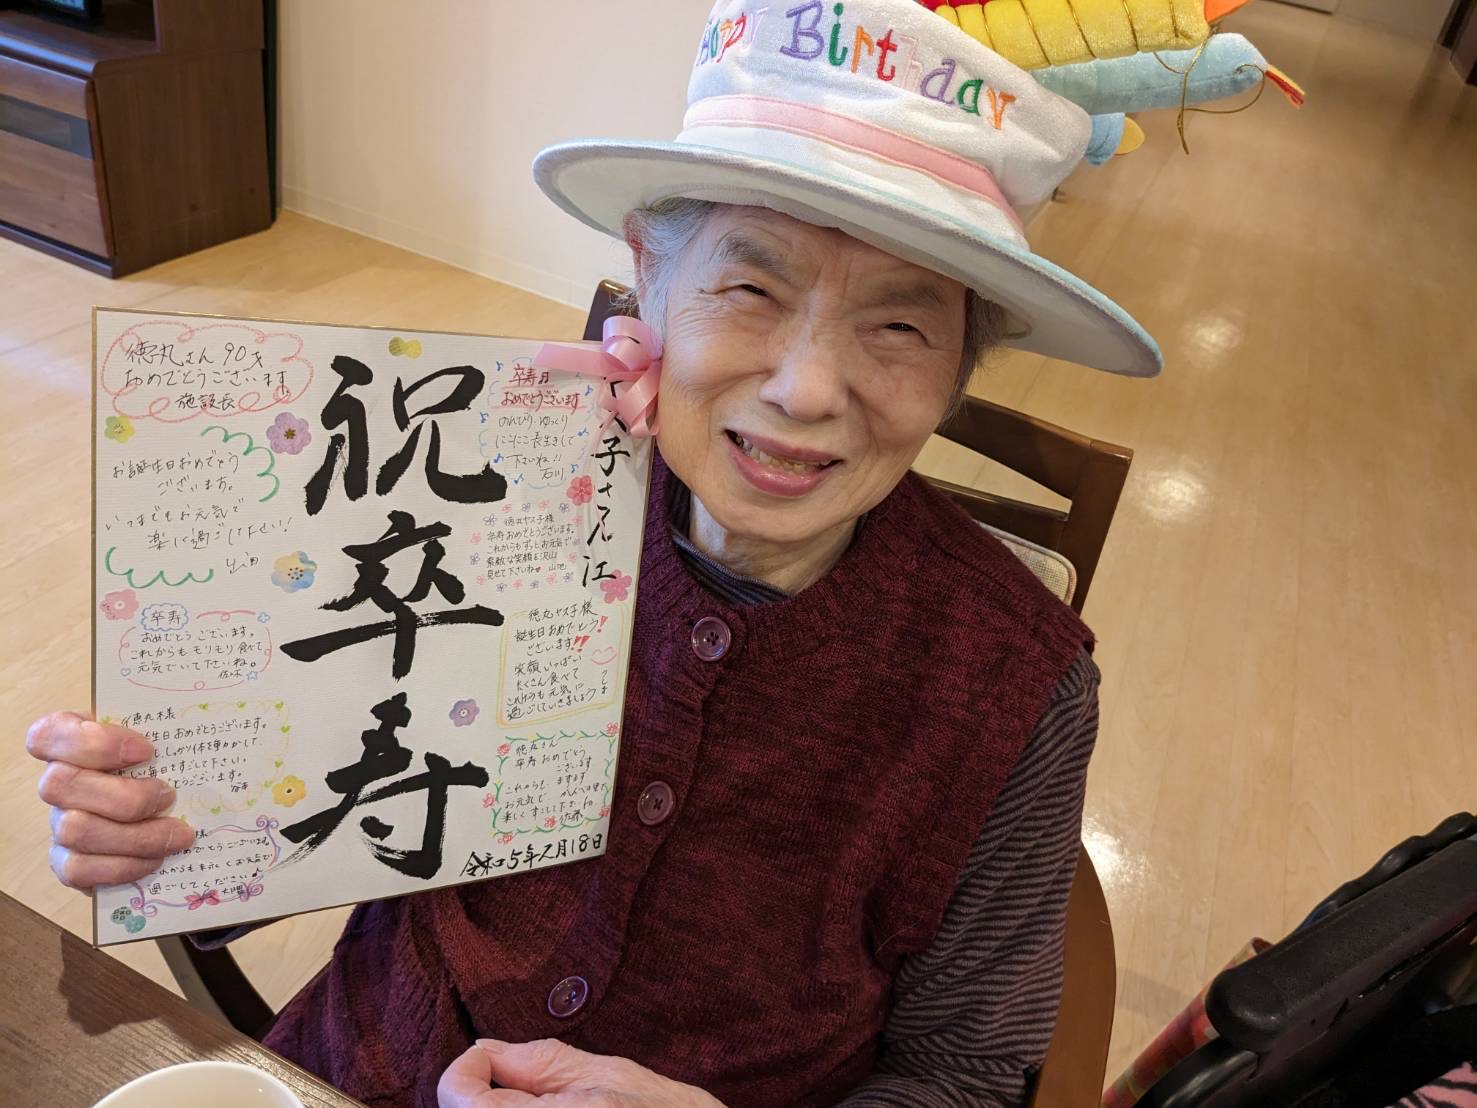 Happy Birthday
徳丸さん90才
おめでとうございます
施設長
お誕生日おめでとう
ございます。
いつまでもお元気で
楽しく過ごして下さい!
山田
卒寿
おめでとうございます。
これからもモリモリ食べて
元気でいて下さいね。
佐々木
徳丸様
生日おめでとうございます。
しっかり体を動かして
い毎日をすごして下さい。
とうございます。
様
おめでとうございます。
これからも末永くお元気で
過ごしてください♪
大隈
祝卒寿
卒寿
おめでとうございます
のんびり・ゆっくり
にこにこ長生きして
下さいね!!
石川
徳丸ヤス子様
卒寿おめでとうございます。
これからもずっとお元気で
素敵な笑顔を沢山
見せて下さいね♥ 山地
徳丸ヤス子様
誕生日おめでとう!
ございます!!
笑顔いっぱい
たくさん食べて
これからも元気に
過ごしていきましょう
徳丸さん
卒寿おめでとう
ございます
これからも、ますます
お元気で、
楽しくすごして下さい
佐藤
ヤス子さん江
令和5年2月18日